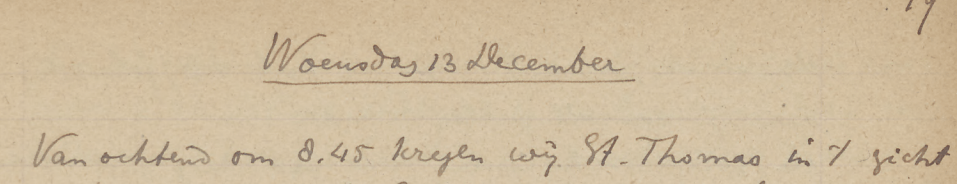 Woensdag 13 December
Van ochtend om 8.45 kregen wij St. Thomas in 't zicht